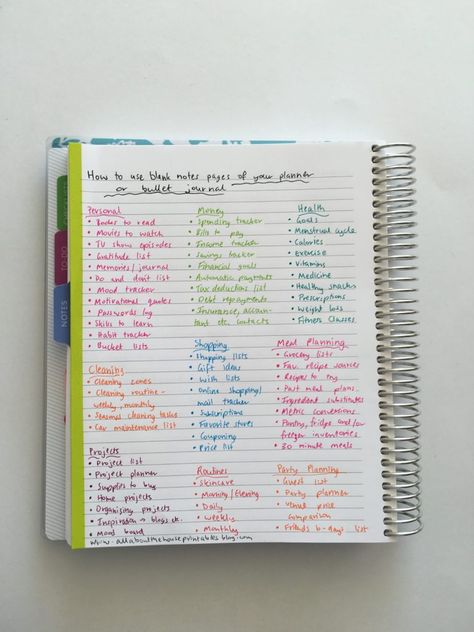 How to use blank notes pages of your planner
or bullet journal
Personal
• Books to read
• Movies to watch
• TV show episodes
• Gratitude list
• Memories/journal
• Do and don't list
• Mood tracker
• Motivational quotes
• Passwords log
• Skills to learn
• Habit tracker
• Bucket lists
Money
• Spending tracker
• Bills to pay
• Income tracker
• Savings tracker
• Financial goals
• Automatic payments
• Tax deductions list
• Debt repayments
• Insurance, accoun-
tant etc. contacts
Health
• Goals
• Menstrual cycle
• Calories
• Exercise
• Vitamins
• Medicine
• Healthy snacks
• Prescriptions
• Weight loss
• Fitness classes
Cleaning
• Cleaning zones
• Cleaning routine -
weekly, monthly
• Seasonal cleaning tasks
• Car maintenance list
Shopping
• Shopping lists
• Gift ideas
• Wish lists
• Online shopping/
mail tracker
• Subscriptions
• Favorite stores
• Couponing
• Price list
Meal Planning
• Grocery lists
• Fav. recipe sources
• Recipes to try
• Past meal plans
• Ingredient substitutes
• Metric conversions
• Pantry, fridge and/or
freezer inventories
• 30 minute meals
Projects
• Project list
• Project planner
• Supplies to buy
• Home projects
• Organising projects
• Inspiration → blogs etc.
• Mood board
Routines
• Skincare
• Morning/Evening
• Daily
• Weekly
• Monthly
Party Planning
• Guest list
• Party planner
• Venue price
comparison
• Friends b-days list
www.allaboutthehouseprintablesblog.com
TO DO
NOTES